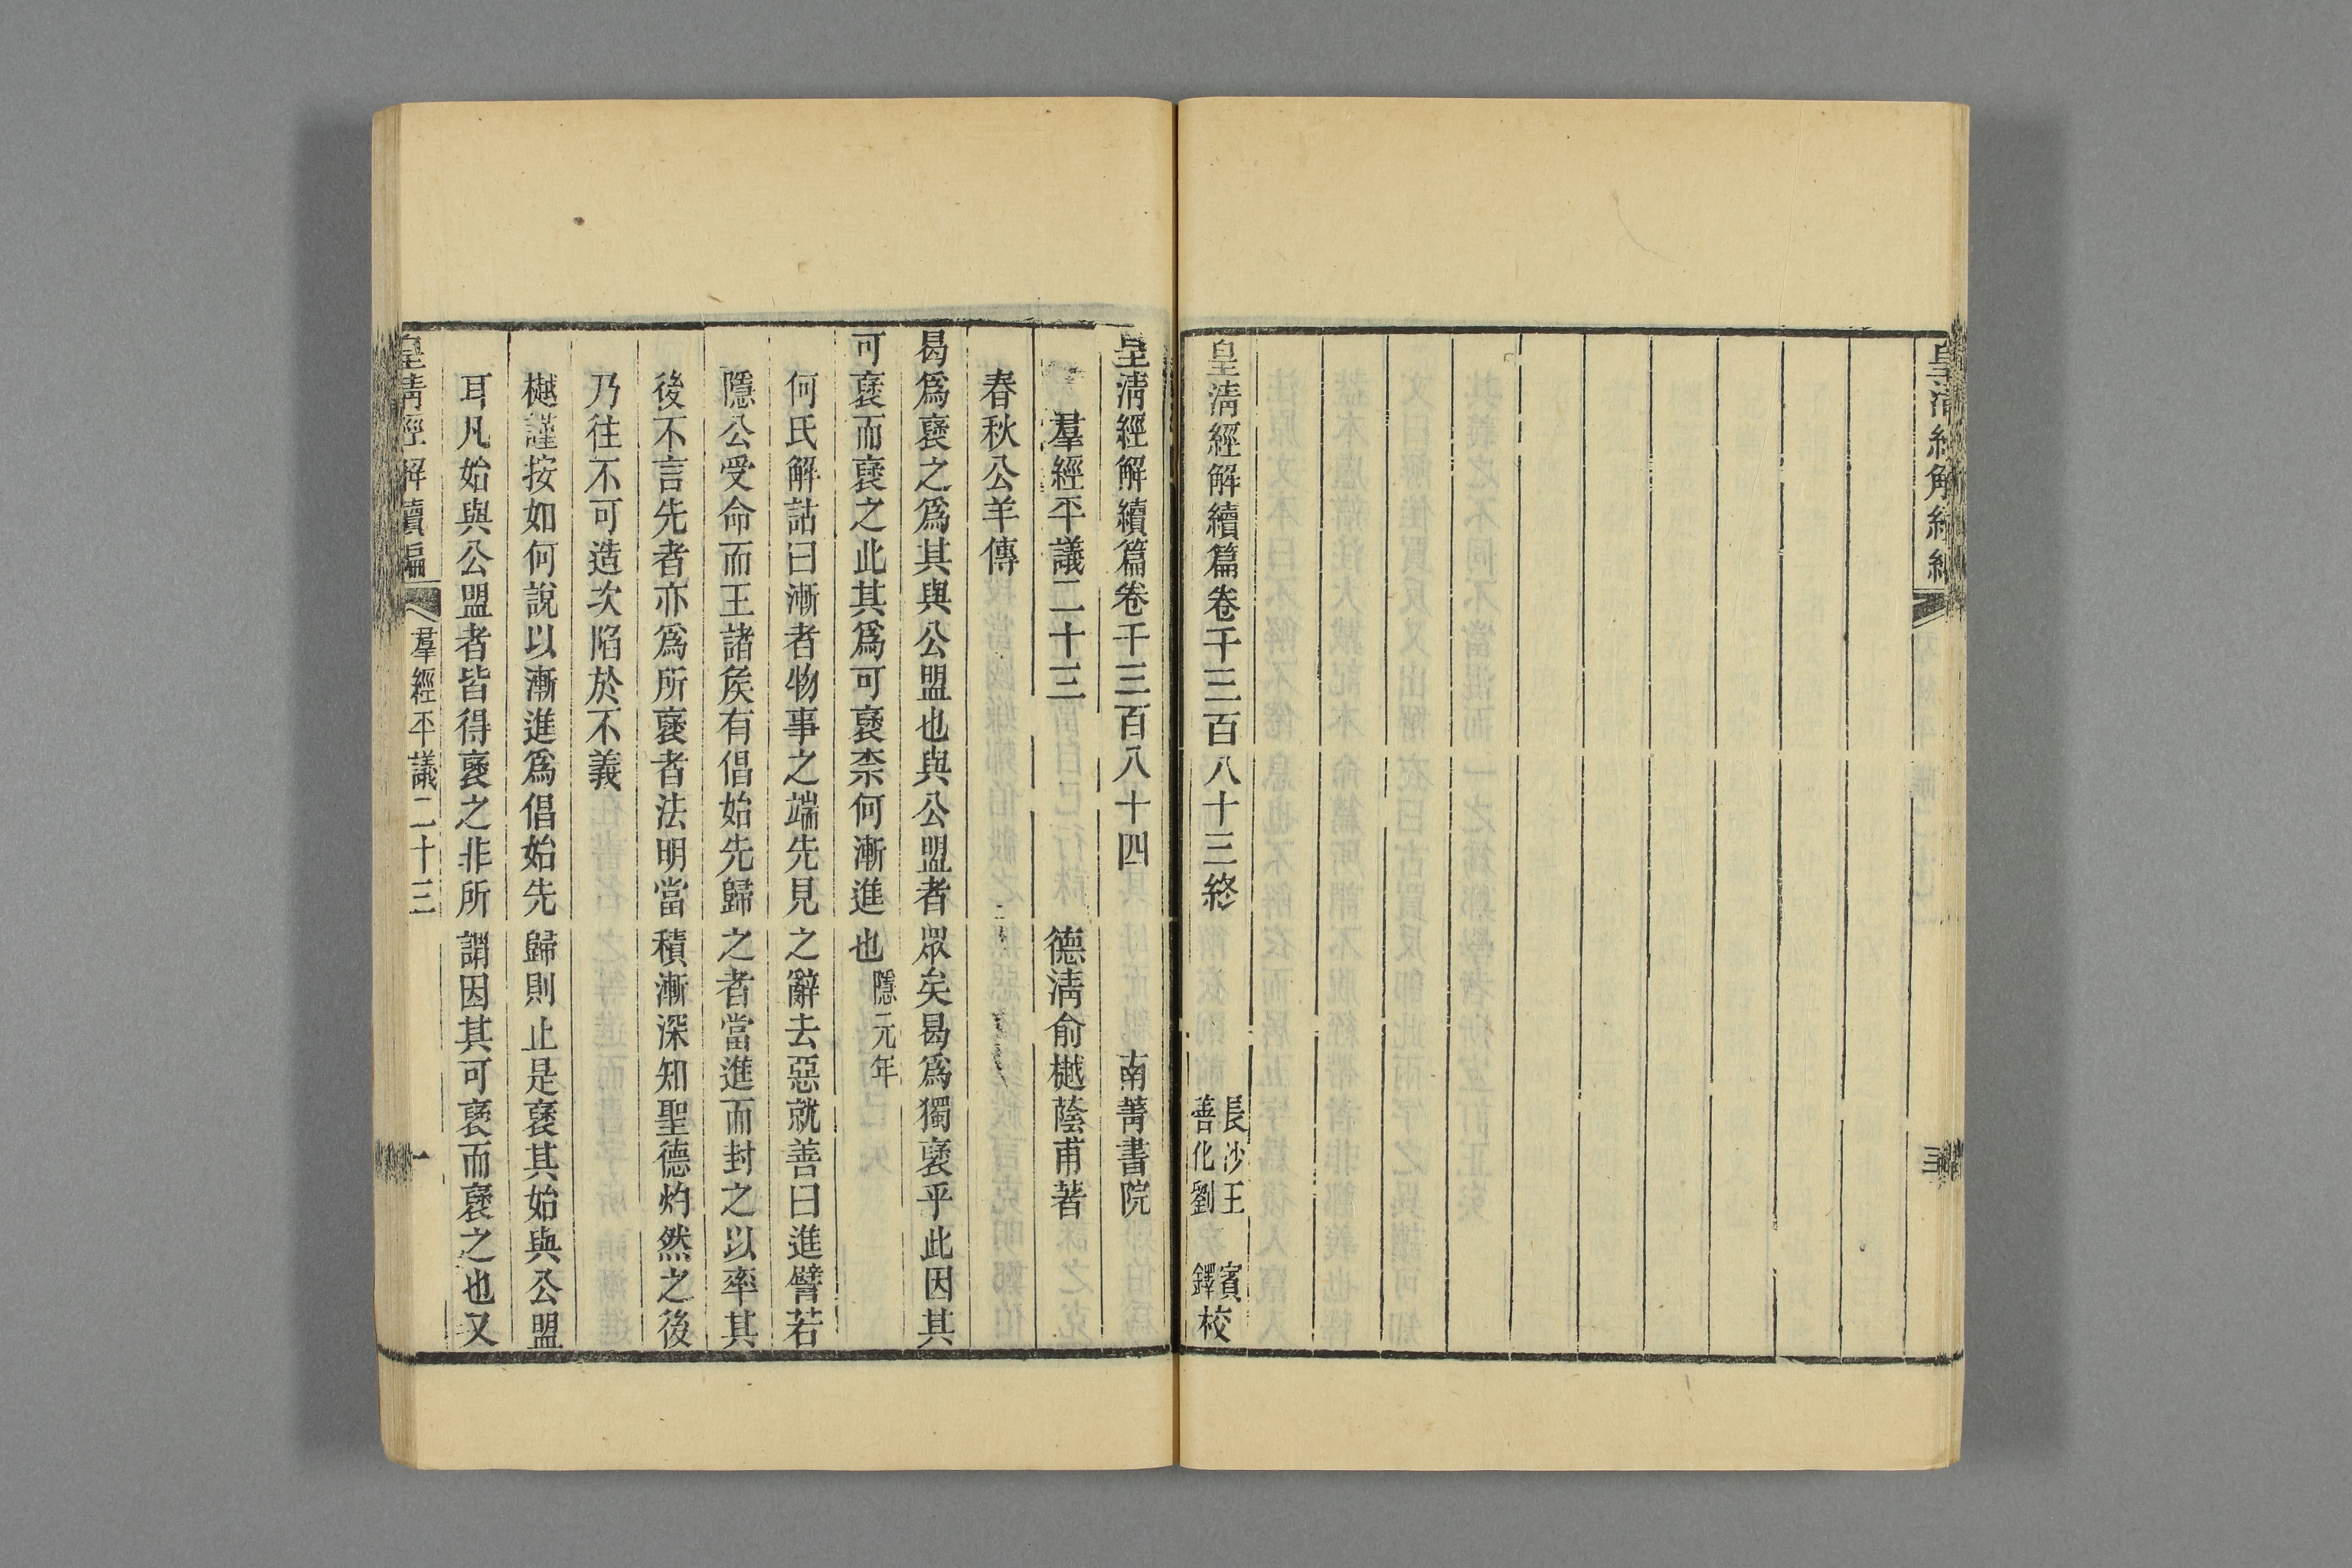 皇清經解續篇卷千三百八十三終
長沙王 賓
善化劉 鐸
校
皇清經解續篇卷千三百八十四 南菁書院
羣經平議二十三 德清俞樾蔭甫著
春秋公羊傳
曷爲襃之爲其與公盟也與公盟者眾矣曷爲獨襃乎此因其
可襃而襃之此其爲可襃柰何漸進也 隱元年
何氏解詁曰漸者物事之端先見之辭去惡就善曰進譬若
隱公受命而王諸矦有倡始先歸之者當進而封之以率其
後不言先者亦爲所襃者法明當積漸深知聖德灼然之後
乃往不可造次陷於不義
樾謹按如何說以漸進爲倡始先歸則止是襃其始與公盟
耳凡始與公盟者皆得襃之非所謂因其可襃而襃之也又
皇清經解續編 羣經平議二十三 一